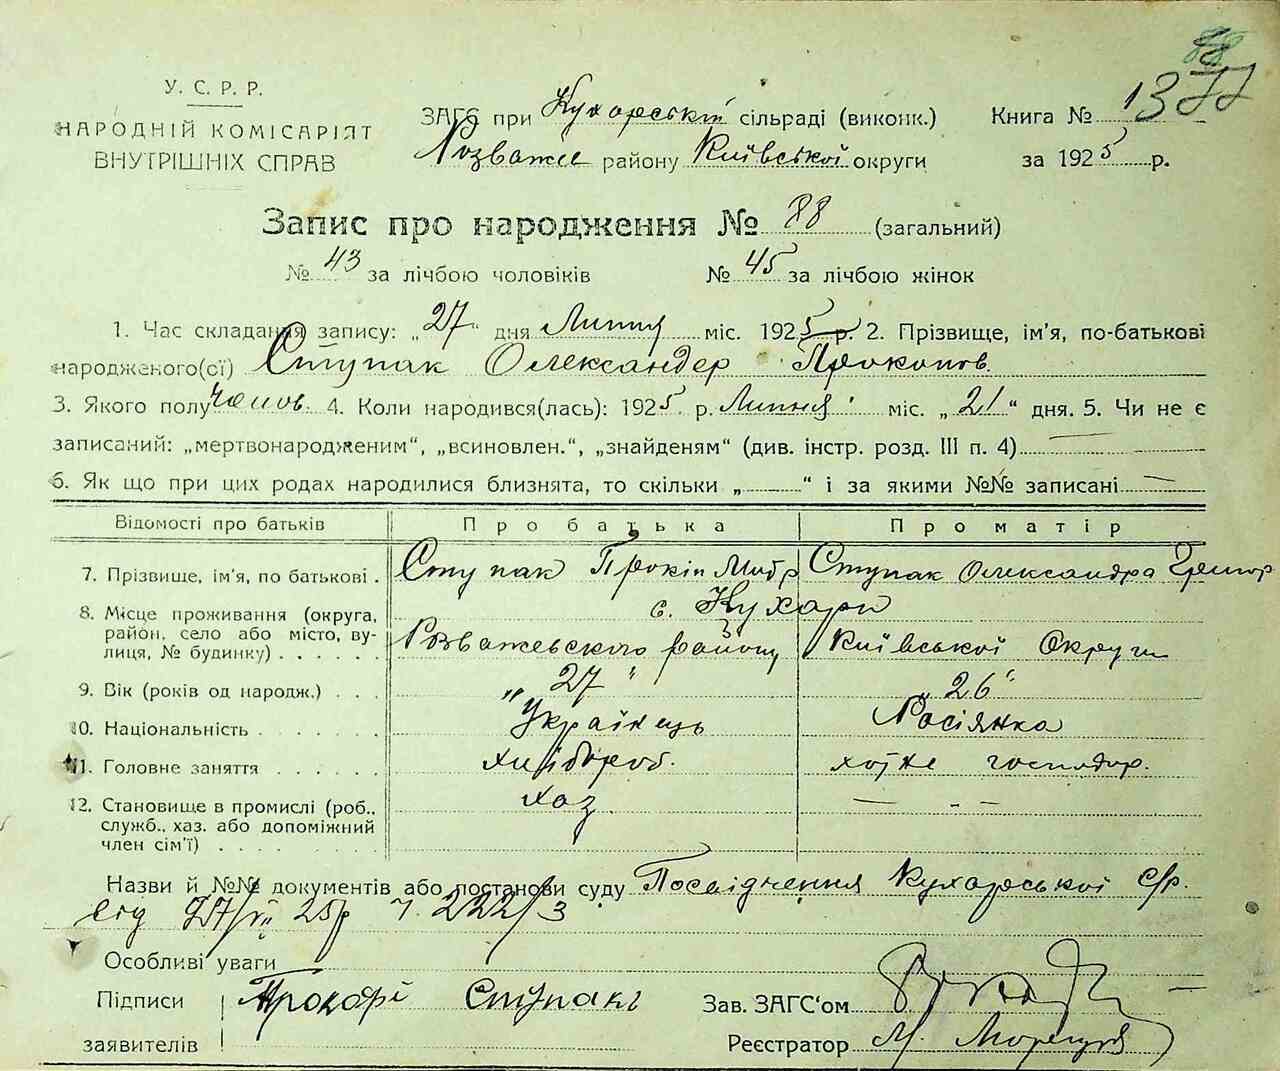 88
У. С. Р. Р.
НАРОДНІЙ КОМІСАРІЯТ
ВНУТРІШНІХ СПРАВ
ЗАГС при Кухарській сільраді (виконк.)
Розваже району Київської округи
Книга № 1377
за 1925 р.
Запис про народження № 88 (загальний)
№ 43 за лічбою чоловіків № 45 за лічбою жінок
1. Час складання запису: „27“ дня Липня міс. 1925 р. 2. Прізвище, ім'я, по-батькові
народженого(сї) Ступак Олександер Прокопов.
3. Якого полу чолов. 4. Коли народився(лась): 1925 р. Липня міс. „21“ дня. 5. Чи не є
записаний: „мертвонародженим“, „всиновлен.“, „знайденям“ (див. інстр. розд. III п. 4) —
6. Як що при цих родах народилися близнята, то скільки „ “ і за якими №№ записані —
Відомості про батьків Про батька Про матір
7. Прізвище, ім'я, по батькові . Ступак Прокіп Ступак Олександра Григор
8. Місце проживання (округа, с. Кухари
район, село або місто, ву- Розважевского району Київської Округи
лиця, № будинку) . . . . . .
9. Вік (років од народж.) . . . „27“ „26“
10. Національність . . . . . . . Українець Росіянка
11. Головне заняття . . . . . . хлібороб. хатнє господар.
12. Становище в промислі (роб., хаз. — - -
служб., хаз. або допоміжний
член сім'ї) . . . . . . . . .
Назви й №№ документів або постанови суду Посвідчення Кухарської с/р.
від 27/VII 25р ч. 222/3
Особливі уваги
Підписи Прокофі Ступакі Зав. ЗАГС'ом
заявителів Реєстратор М.